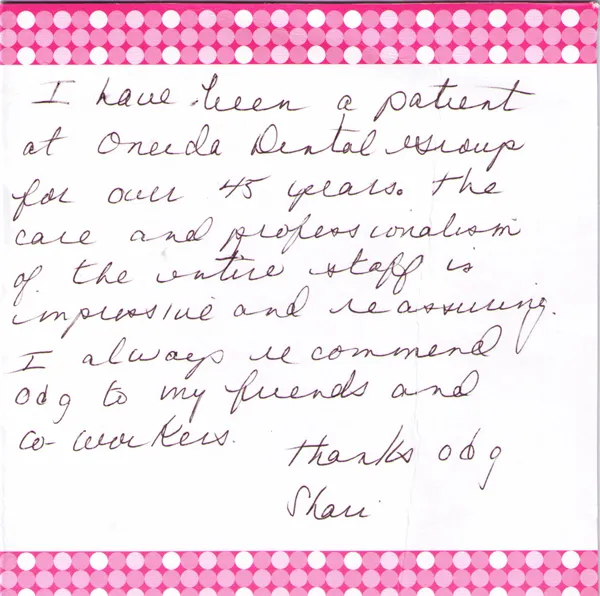 I have been a patient
at Oneida Dental Group
for over 45 years. The
care and professionalism
of the entire staff is
impressive and reassuring.
I always recommend
odg to my friends and
co-workers.
Thanks odg
Shari